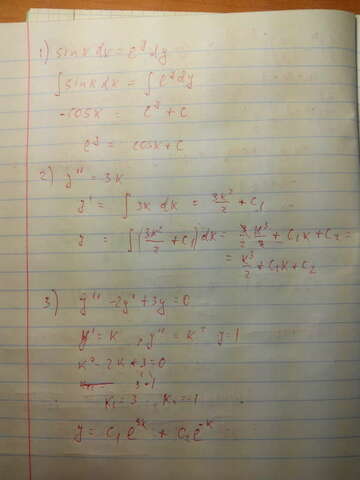 1) sinx dx = e^y dy
∫ sinx dx = ∫ e^y dy
-cosx = e^y + c
e^y = cosx + c
2) y'' = 3x
y' = ∫ 3x dx = 3x²/2 + c₁
y = ∫ (3x²/2 + c₁) dx = 3/2 · x³/3 + c₁x + c₂ =
= x³/2 + c₁x + c₂
3) y'' - 2y' + 3y = 0
y' = k , y'' = k² y = 1
k² - 2k + 3 = 0
k₁ = 3 , k₂ = -1
y = c₁ e^3x + c₂ e^-x